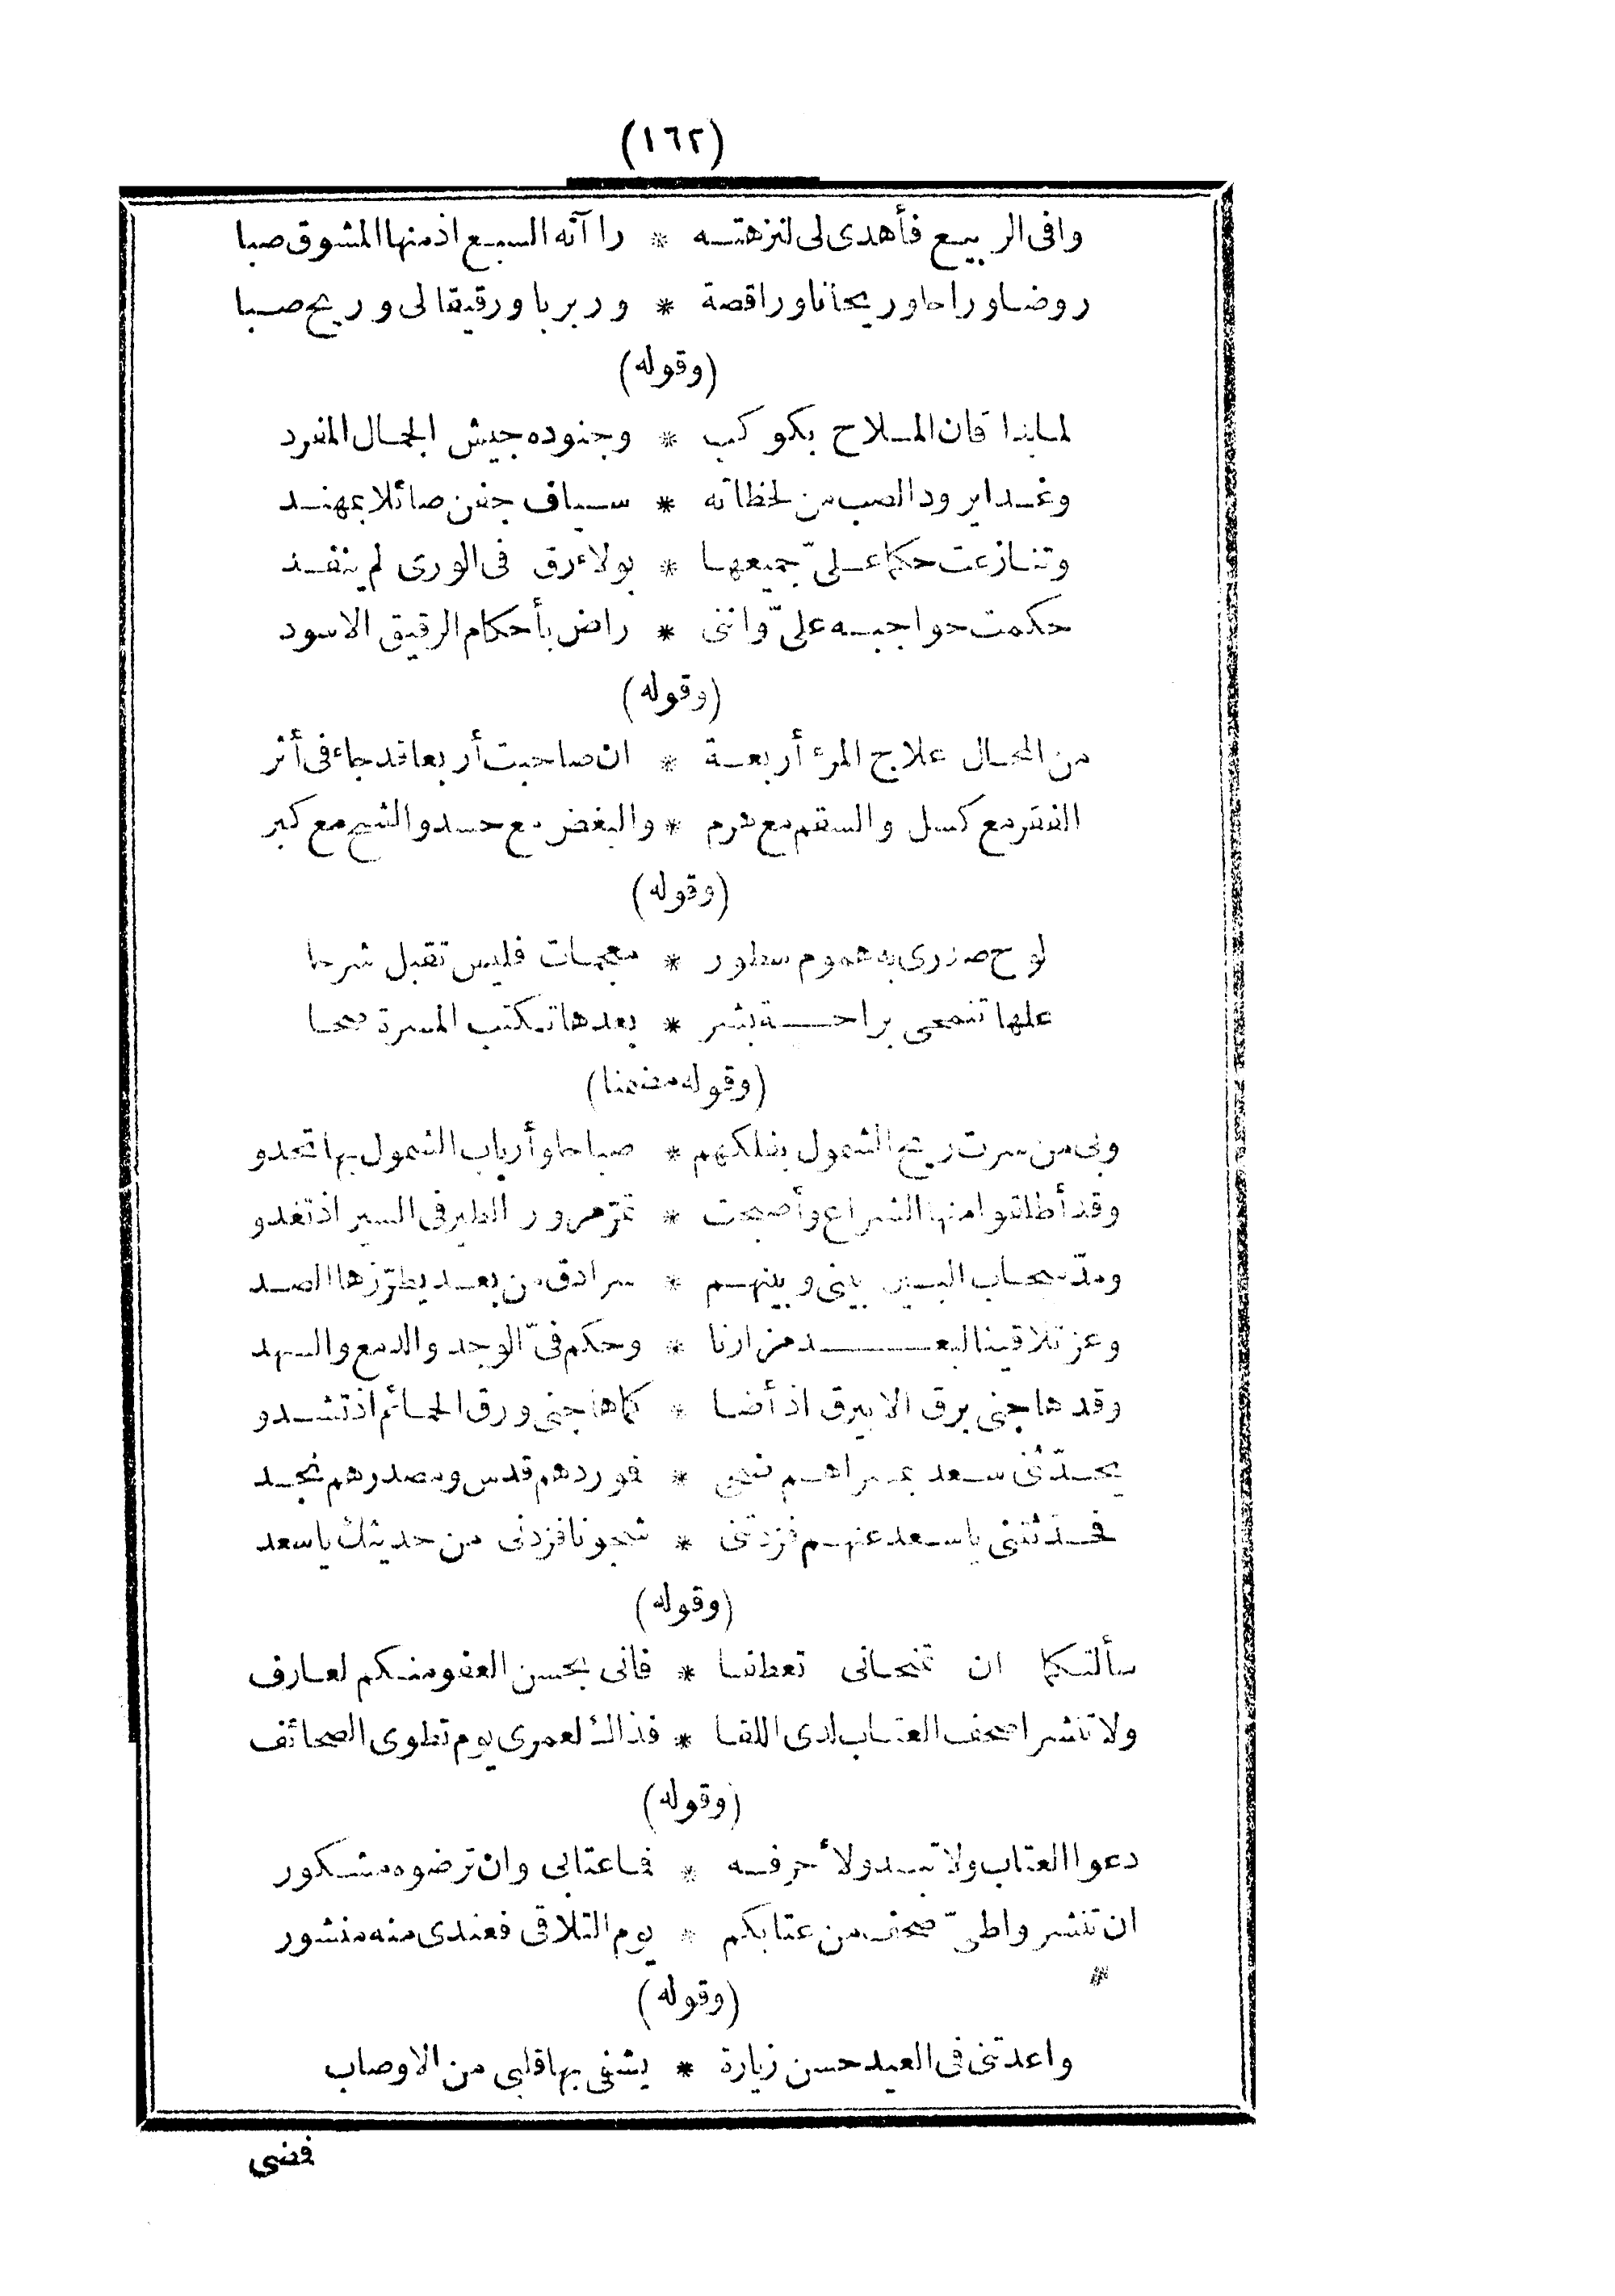 (١٦٢)
وافى الربيع فأهدى لى لنزهتـه * را آته السبع اذ منها المشوق صبا
روضا وراحا وريحانا وراقصة * وربربا ورقيقا لى وريح صبا
(وقوله)
لما بدا قان الملاح بكوكب * وجنوده جيش الجمال المفرد
وغدا يرود الصب من لحظاته * سياف جفن صائلا بمهند
وتنازعت حكما علىّ جميعها * بولاء رق فى الورى لم ينفد
حكمت حواجبه علىّ واننى * راض بأحكام الرقيق الاسود
(وقوله)
من المحال علاج المرء أربعة * ان صاحبت أربعا قد جاء فى أثر
الفقر مع كسل والسقم مع هرم * والبغض مع حسد والشح مع كبر
(وقوله)
لوح صدرى به هموم سطور * معجمات فليس تقبل شرحا
علها تنمحى براحة بشر * بعدها تكتب المسرة صحا
(وقوله مضمنا)
وبى من سرت ريح الشمول بفلكهم * صباحا وأرباب الشمول بها تحدو
وقد أطلقوا منها الشراع وأصبحت * تمرّ مرور الطير فى السير اذ تغدو
ومدّ سحاب البين بينى وبينهم * سرادق من بعد يطرّزها الصد
وعز تلاقينا لبعد مزارنا * وحكم فىّ الوجد والدمع والسهد
وقد هاجنى برق الابيرق اذ أضا * كما هاجنى ورق الحمائم اذ تشدو
يحدّثنى سعد بمسراهم نحى * فوردهم قدس ومصدرهم نجد
فحدثتنى يا سعد عنهم فزدتنى * شجونا فزدنى من حديثك يا سعد
(وقوله)
سألتكما ان تمنحانى تعطفا * فانى بحسن العفو منكم لعارف
ولا تنشرا صحف العتاب لدى اللقا * فذاك لعمرى يوم تطوى الصحائف
(وقوله)
دعوا العتاب ولا تبدو لأحرفه * فما عتابى وان ترضوه مشكور
ان تنشروا طىّ صحف من عتابكم * يوم التلاقى فعندى منه منشور
(وقوله)
واعدتنى فى العيد حسن زيارة * يشفى بها قلبى من الاوصاب
فضى